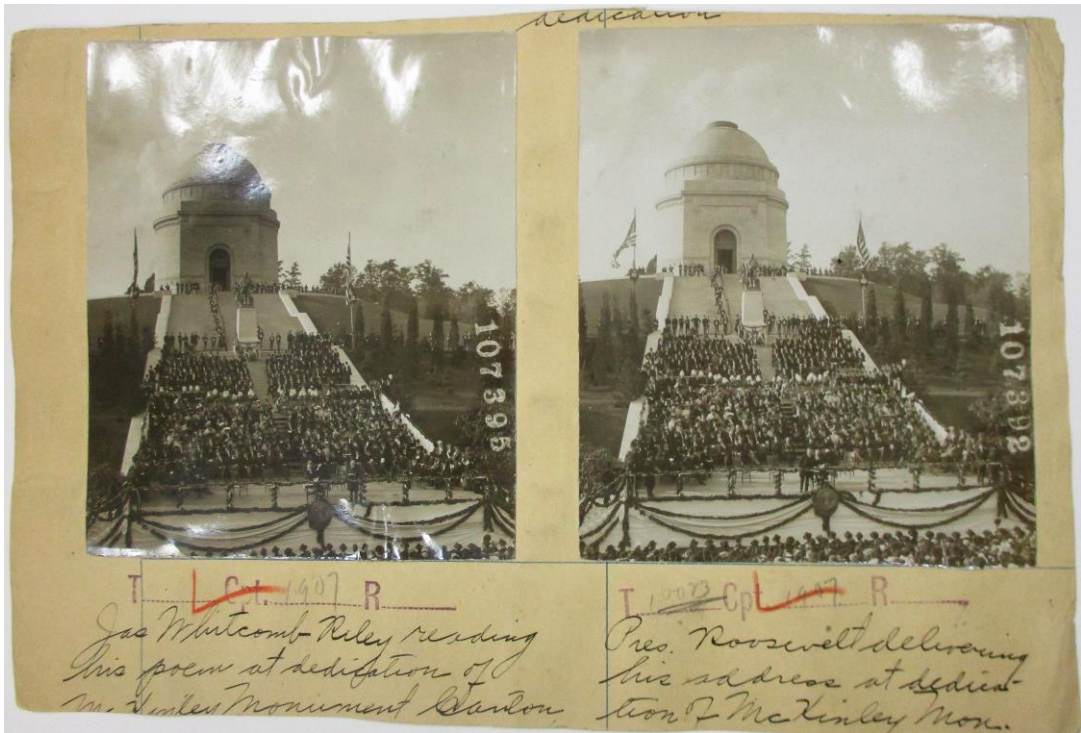 dedication
107395
107392
T Cpt. 1907 R
Jas Whitcomb Riley reading
his poem at dedication of
McKinley Monument Canton,
T Cpt 1907 R
Pres. Roosevelt delivering
his address at dedica-
tion of McKinley Mon.